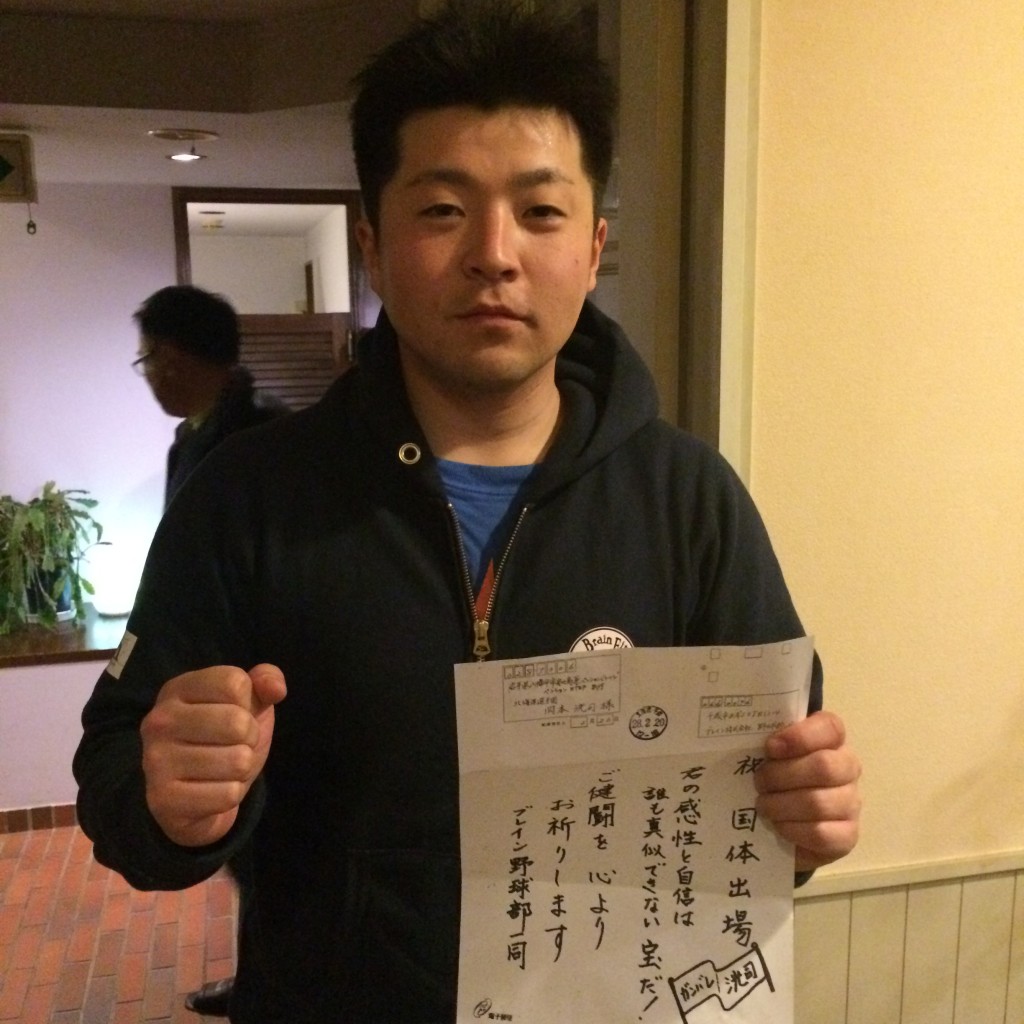 Brain
北海道選手団
岡本 洸司 様
28.2.20
祝 国体出場
君の感性と自信は
誰も真似できない宝だ!
ご健闘を心より
お祈りします
ブレイン野球部一同
ガンバレ 洸司
電子郵便